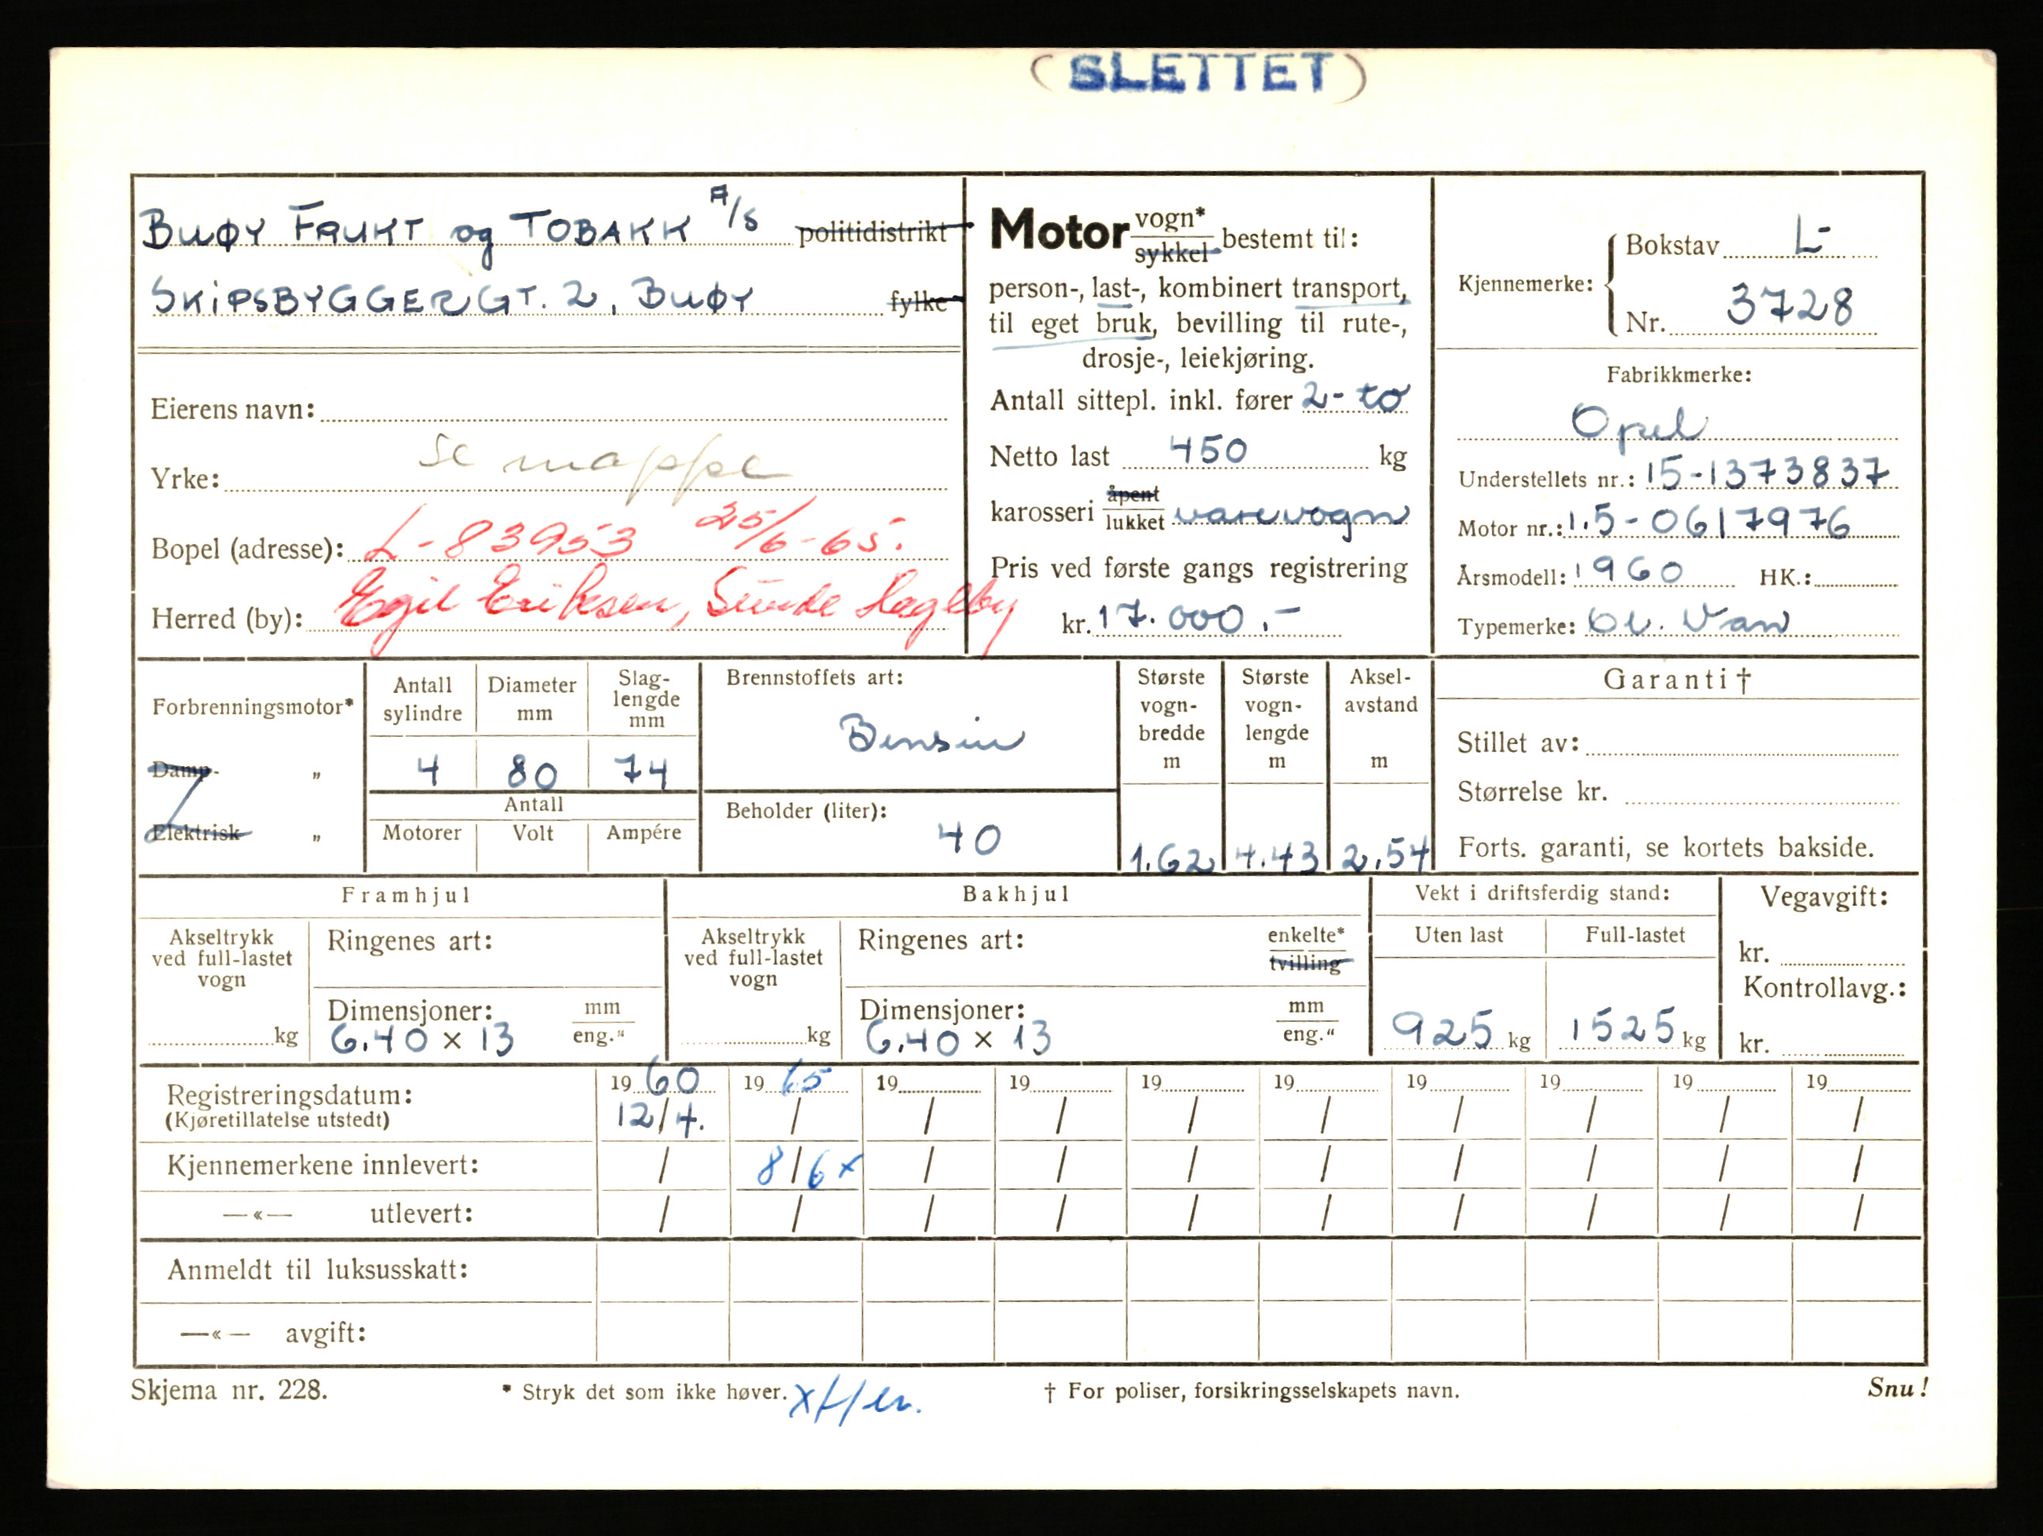 (SLETTET)
BUØY FRUKT og TOBAKK A/S politidistrikt
SKIPSBYGGERGT. 2, BUØY fylke
Eierens navn:
Yrke: se mappe
Bopel (adresse): L-83953 25/6-65.
Herred (by): Egil Eriksen, Sunde
Motor vogn* sykkel bestemt til:
person-, last-, kombinert transport,
til eget bruk, bevilling til rute-,
drosje-, leiekjøring.
Antall sittepl. inkl. fører 2- to
Netto last 450 kg
karosseri åpent lukket varevogn
Pris ved første gangs registrering
kr. 17.000.-
Kjennemerke: Bokstav L-
Nr. 3728
Fabrikkmerke:
Opel
Understellets nr.: 15-1373837
Motor nr.: 1.5-0617976
Årsmodell: 1960 HK.:
Typemerke: Ol. Van
Forbrenningsmotor*
Damp- "
Elektrisk "
Antall sylindre
4
Diameter mm
80
Slag-lengde mm
74
Antall
Motorer Volt Ampére
Brennstoffets art:
Bensin
Beholder (liter):
40
Største vogn-bredde m
1.62
Største vogn-lengde m
4.43
Aksel-avstand m
2.54
Garanti †
Stillet av:
Størrelse kr.
Forts. garanti, se kortets bakside.
Framhjul
Akseltrykk ved full-lastet vogn
kg
Ringenes art:
Dimensjoner: mm eng."
6.40 × 13
Bakhjul
Akseltrykk ved full-lastet vogn
kg
Ringenes art: enkelte* tvilling
Dimensjoner: mm eng."
6.40 × 13
Vekt i driftsferdig stand:
Uten last Full-lastet
925 kg 1525 kg
Vegavgift:
kr.
Kontrollavg.:
kr.
Registreringsdatum: 1960 1965 19 19 19 19 19 19 19 19
(Kjøretillatelse utstedt) 12/4. / / / / / / / / /
Kjennemerkene innlevert: / 8/6 x / / / / / / / /
—«— utlevert: / / / / / / / / / /
Anmeldt til luksusskatt:
—«— avgift:
Skjema nr. 228. * Stryk det som ikke høver. † For poliser, forsikringsselskapets navn. Snu!